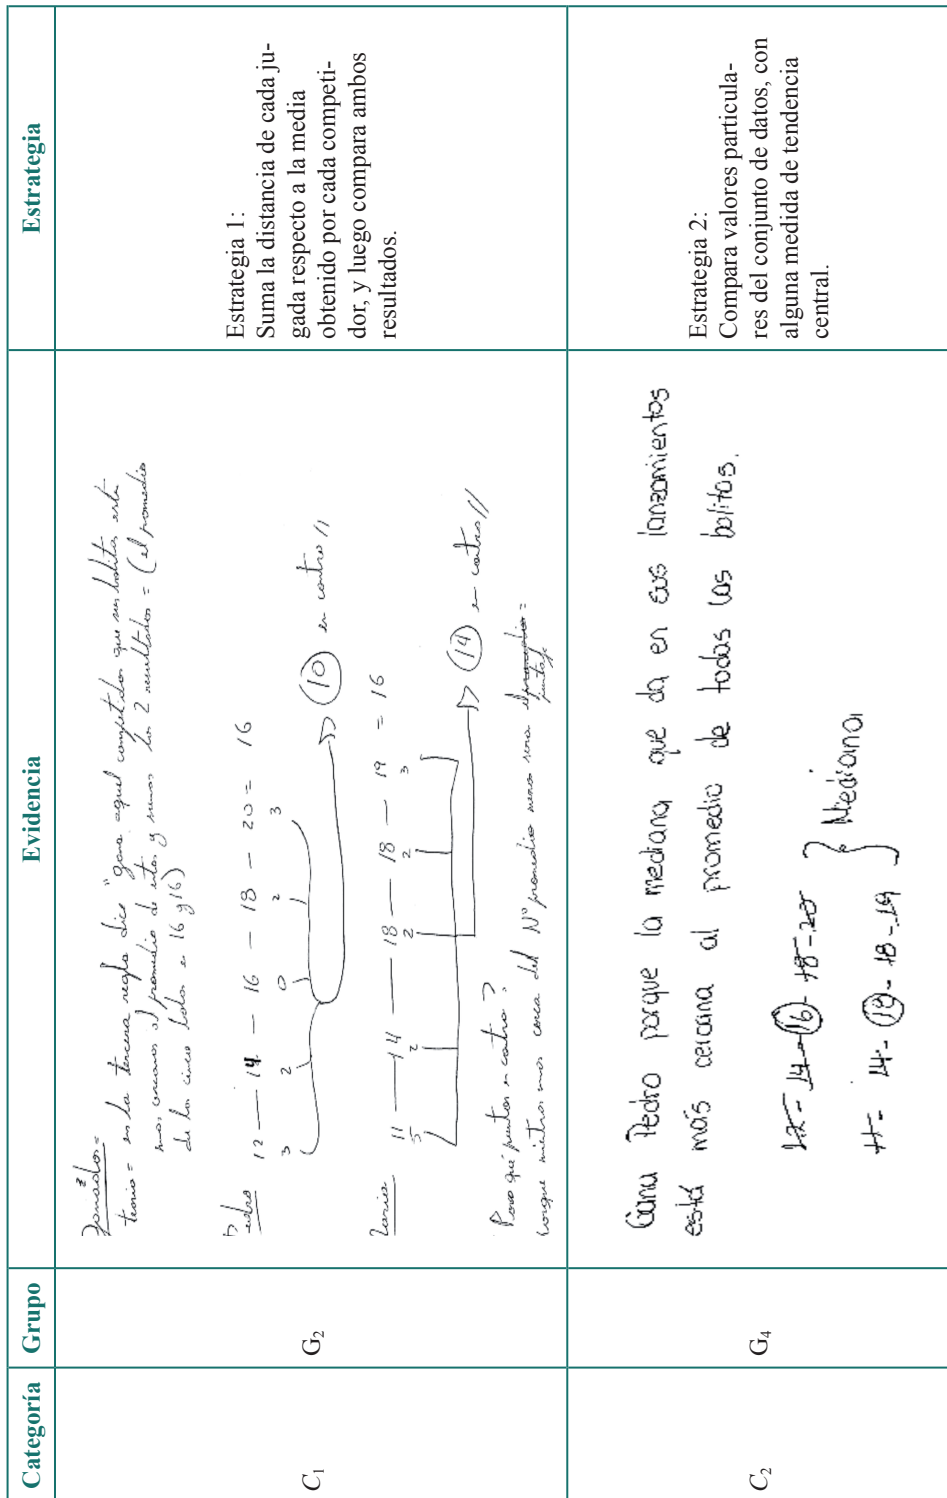 Categoría Grupo Evidencia Estrategia
C₁
G₂
Ganador =
teoria = en la tercera regla dice "gana aquel competidor que sus bolitas está
mas cercanas al promedio de estas y vemos los 2 resultados = (el promedio
de los cinco bolos = 16 y 16)
Pedro 12 — 14 — 16 — 18 — 20 = 16
3 2 0 2 3
10 en contra //
Maria 11 — 14 — 18 — 18 — 19 = 16
5 2 2 2 3
14 en contra //
Poro qué puntos en contra?
Porque mientras mas cerca del N° promedio menos sera el promedio =
puntaje
Estrategia 1:
Suma la distancia de cada ju-
gada respecto a la media
obtenido por cada competi-
dor, y luego compara ambos
resultados.
C₂
G₄
Gana Pedro porque la mediana que da en sus lanzamientos
está más cercana al promedio de todas las bolitas.
12 - 14 - 16 - 18 - 20
11 - 14 - 18 - 18 - 19
Mediana
Estrategia 2:
Compara valores particula-
res del conjunto de datos, con
alguna medida de tendencia
central.